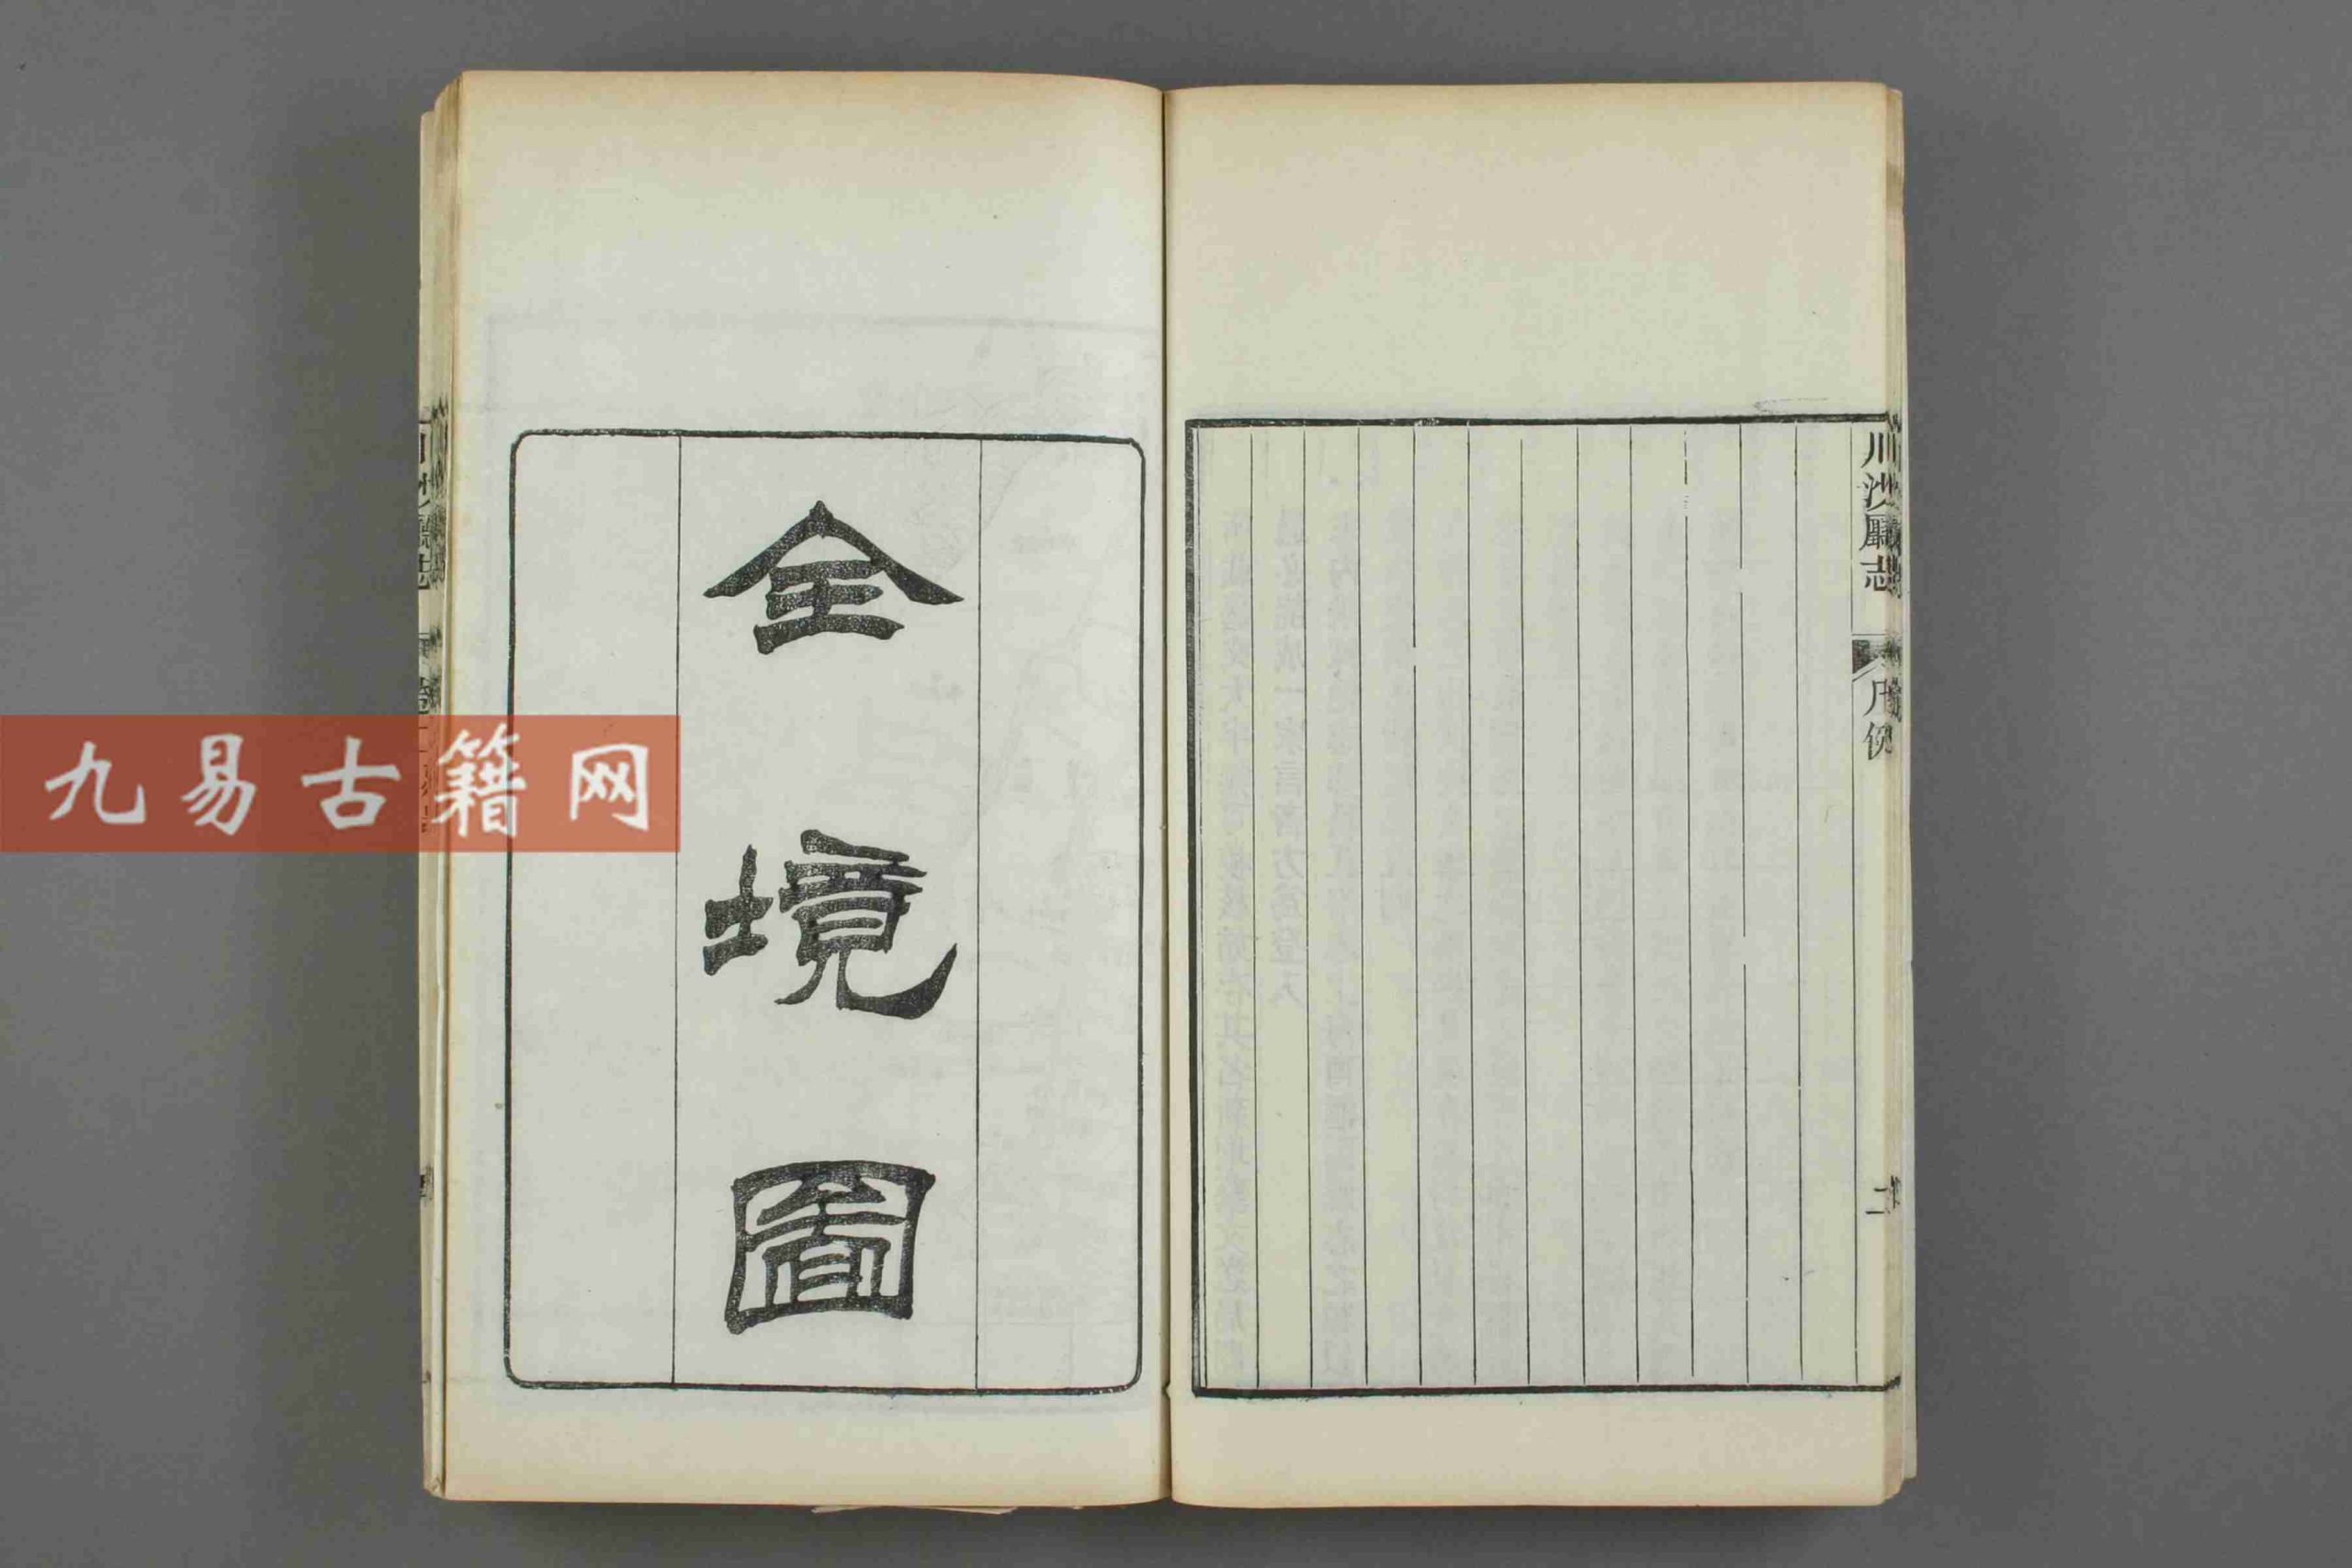 川沙廳志
凡例
二
全境圖
九易古籍网